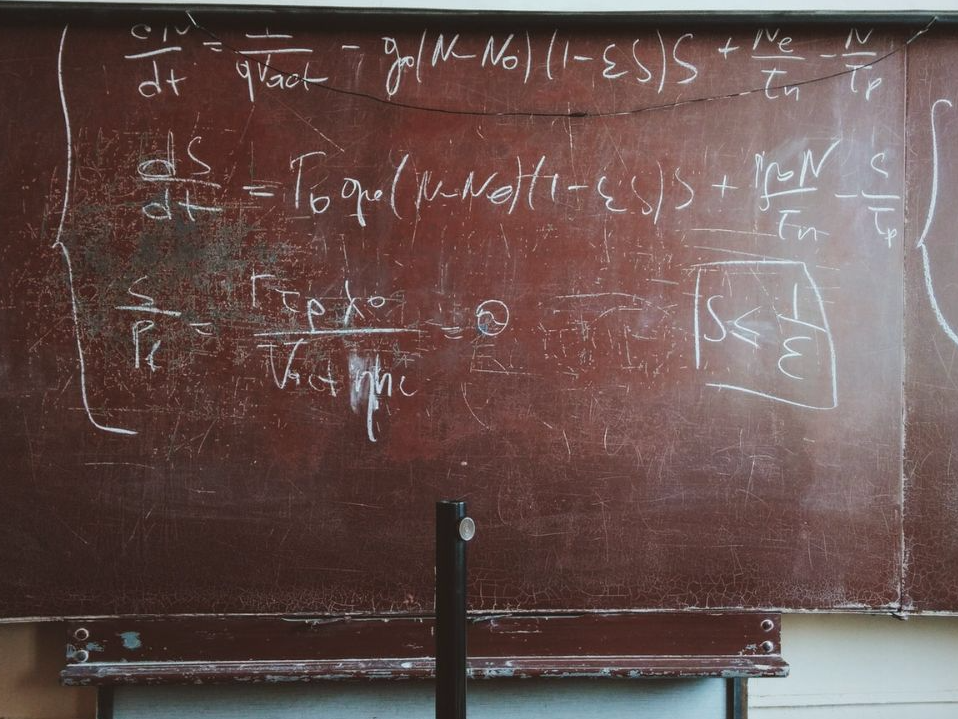 dN/dt = I/qVact - g₀(N-N₀)(1-εS)S + Ne/τn - N/τp
dS/dt = Γ₀g₀(N-N₀)(1-εS)S + N/τn - S/τp
S/Pf = Γτpλ₀/Vact ηhc = ②
S ≤ 1/ε